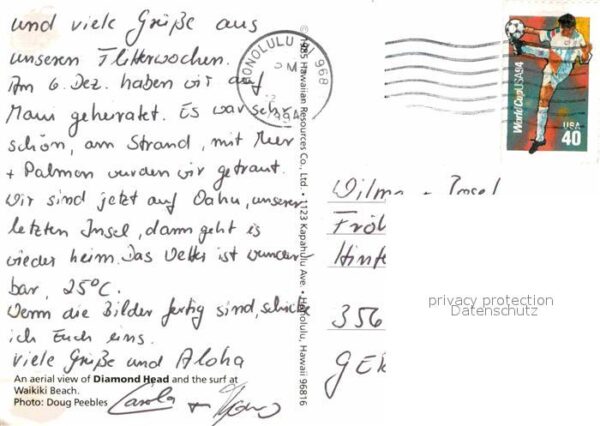 und viele Grüße aus
unseren Flitterwochen.
Am 6. Dez. haben wir auf
Maui geheiratet. Es war sehr
schön, am Strand, mit Meer
+ Palmen wurden wir getraut.
Wir sind jetzt auf Oahu, unserer
letzten Insel, dann geht es
wieder heim. Das Wetter ist wunder-
bar, 25°C.
Wenn die Bilder fertig sind, schicke
ich Euch eins.
Viele Grüße und Aloha
An aerial view of Diamond Head and the surf at
Waikiki Beach.
Photo: Doug Peebles
Carola +
© 1985 Hawaiian Resources Co., Ltd. • 1123 Kapahulu Ave. • Honolulu, Hawaii 96816
HONOLULU HI 968
PM
1994
World Cup USA 94
USA
40
Wilma +
Fröh
Hint
356
GER
privacy protection
Datenschutz